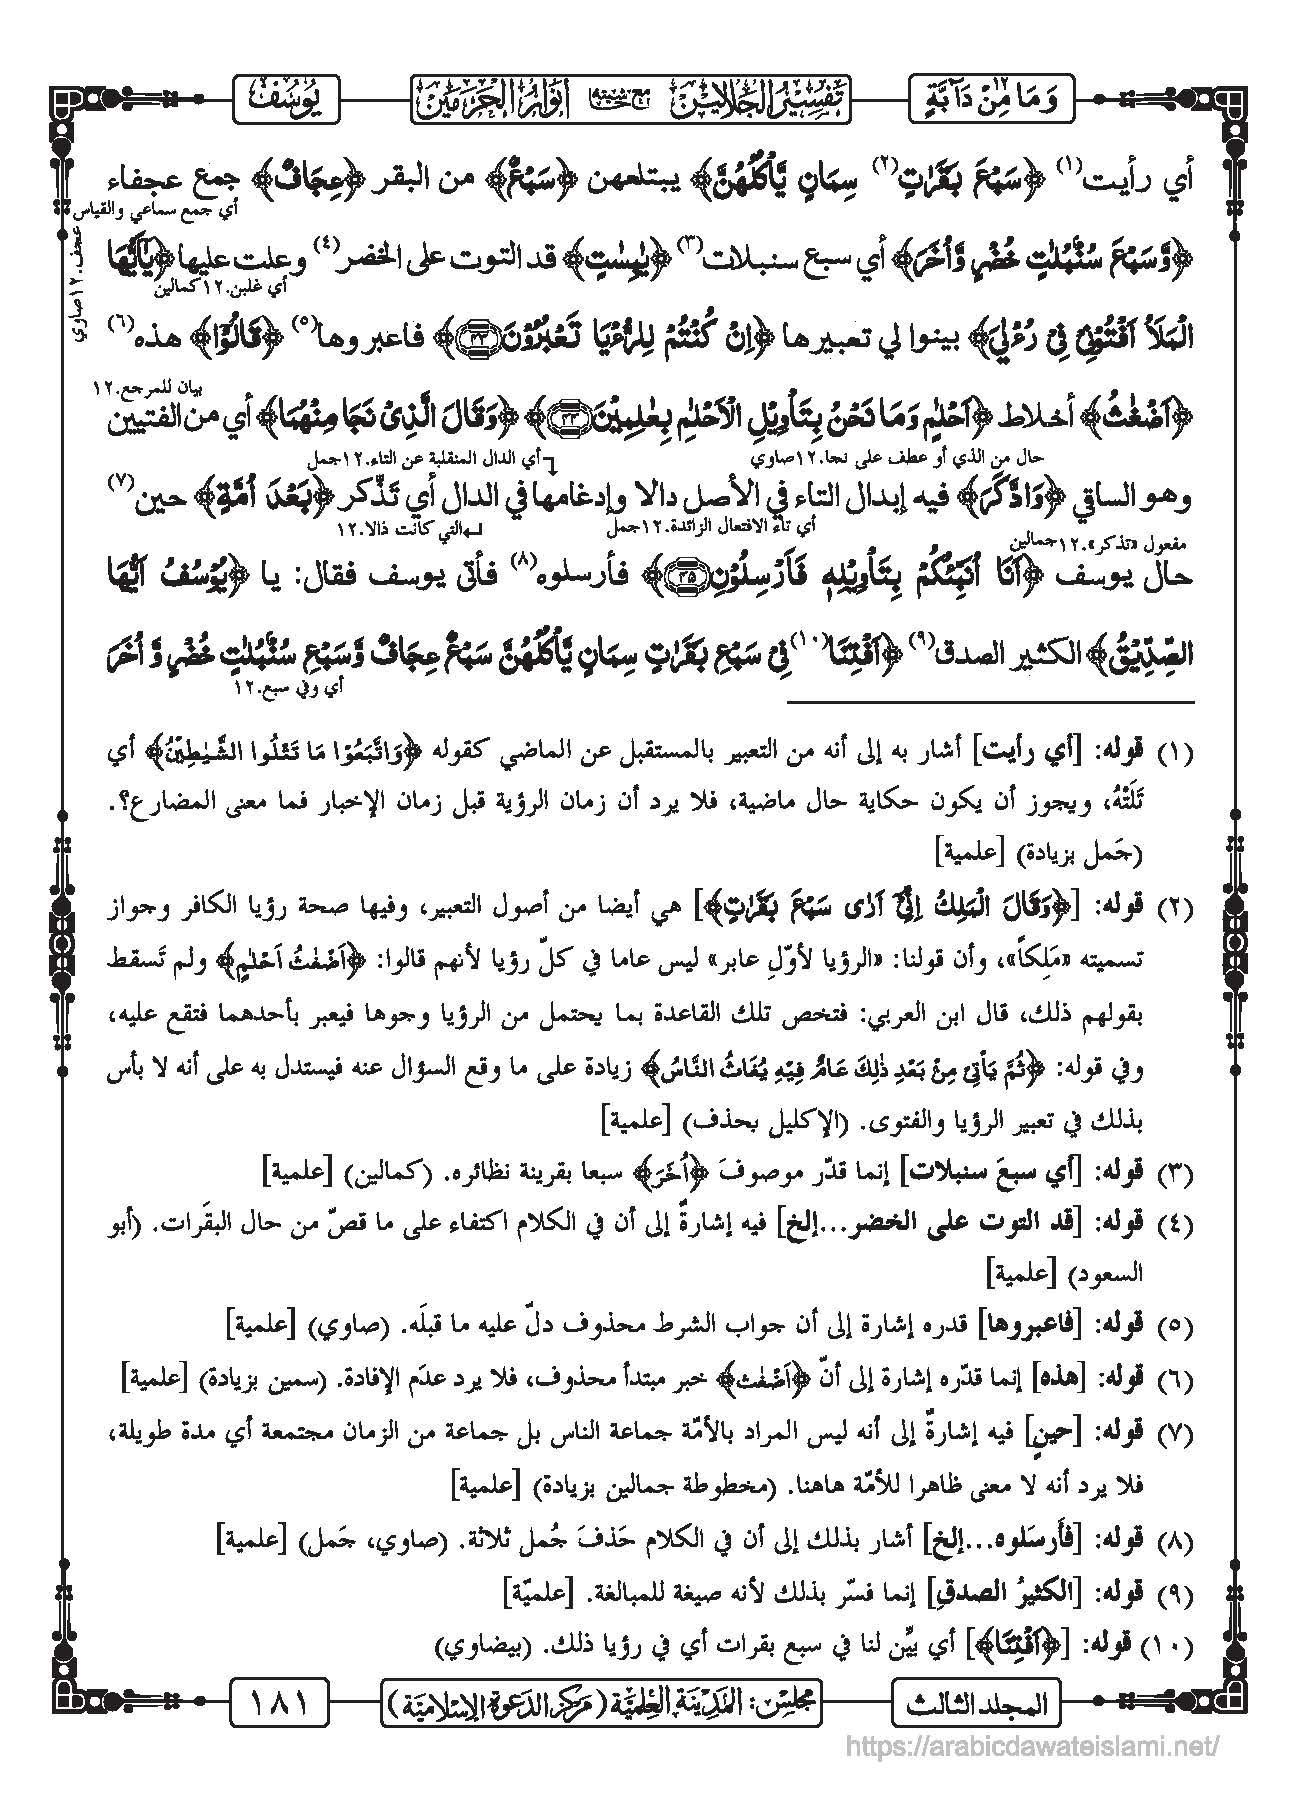 وَمَا مِنْ دَآبَّةٍ ١٢
تفسير الجلالين مع حاشية أنوار الحرمين
يُوسُف
أي رأيت(١) ﴿سَبْعَ بَقَرٰتٍ(٢) سِمَانٍ يَّاْكُلُهُنَّ﴾ يبتلعهن ﴿سَبْعٌ﴾ من البقر ﴿عِجَافٌ﴾ جمع عجفاء
أي جمع سماعي والقياس
عجف. ١٢صاوي
﴿وَّسَبْعَ سُنْۢبُلٰتٍ خُضْرٍ وَّاُخَرَ﴾ أي سبع سنبلات(٣) ﴿يٰبِسٰتٍ﴾ قد التوت على الخضر(٤) وعلت عليها ﴿يٰۤاَيُّهَا
أي غلبن. ١٢كمالين
الْمَلَاُ اَفْتُوْنِيْ فِيْ رُءْيَايَ﴾ بينوا لي تعبيرها ﴿اِنْ كُنْتُمْ لِلرُّءْيَا تَعْبُرُوْنَ ٤٣﴾ فاعبروها(٥) ﴿قَالُوْۤا﴾ هذه(٦)
بيان للمرجع. ١٢
﴿اَضْغٰثُ﴾ أخلاط ﴿اَحْلٰمٍ وَمَا نَحْنُ بِتَاْوِيْلِ الْاَحْلٰمِ بِعٰلِمِيْنَ ٤٤﴾ ﴿وَقَالَ الَّذِيْ نَجَا مِنْهُمَا﴾ أي من الفتيين
حال من الذي أو عطف على نجا. ١٢صاوي
أي الدال المنقلبة عن التاء. ١٢جمل
وهو الساقي ﴿وَادَّكَرَ﴾ فيه إبدال التاء في الأصل دالا وإدغامها في الدال أي تَذّكر ﴿بَعْدَ اُمَّةٍ﴾ حين(٧)
مفعول «تذكر». ١٢جمالين
أي تاء الافتعال الزائدة. ١٢جمل
التي كانت ذالا. ١٢
حال يوسف ﴿اَنَا اُنَبِّئُكُمْ بِتَاْوِيْلِهٖ فَاَرْسِلُوْنِ ٤٥﴾ فأرسلوه(٨) فأتى يوسف فقال: يا ﴿يُوْسُفُ اَيُّهَا
الصِّدِّيْقُ﴾ الكثير الصدق(٩) ﴿اَفْتِنَا(١٠) فِيْ سَبْعِ بَقَرٰتٍ سِمَانٍ يَّاْكُلُهُنَّ سَبْعٌ عِجَافٌ وَّسَبْعِ سُنْۢبُلٰتٍ خُضْرٍ وَّاُخَرَ
أي وفي سبع. ١٢
(١) قوله: [أي رأيت] أشار به إلى أنه من التعبير بالمستقبل عن الماضي كقوله ﴿وَاتَّبَعُوْا مَا تَتْلُوا الشَّيٰطِيْنُ﴾ أي
تَلَتْهُ، ويجوز أن يكون حكاية حال ماضية، فلا يرد أن زمان الرؤية قبل زمان الإخبار فما معنى المضارع؟.
(جَمل بزيادة) [علمية]
(٢) قوله: [﴿وَقَالَ الْمَلِكُ اِنِّيْۤ اَرٰى سَبْعَ بَقَرٰتٍ﴾] هي أيضا من أصول التعبير، وفيها صحة رؤيا الكافر وجواز
تسميته «مَلِكاً»، وأن قولنا: «الرؤيا لأوّلِ عابر» ليس عاما في كلّ رؤيا لأنهم قالوا: ﴿اَضْغٰثُ اَحْلٰمٍ﴾ ولم تَسقط
بقولهم ذلك، قال ابن العربي: فتخص تلك القاعدة بما يحتمل من الرؤيا وجوها فيعبر بأحدهما فتقع عليه،
وفي قوله: ﴿ثُمَّ يَاْتِيْ مِنْۢ بَعْدِ ذٰلِكَ عَامٌ فِيْهِ يُغَاثُ النَّاسُ﴾ زيادة على ما وقع السؤال عنه فيستدل به على أنه لا بأس
بذلك في تعبير الرؤيا والفتوى. (الإكليل بحذف) [علمية]
(٣) قوله: [أي سبعَ سنبلات] إنما قدّر موصوفَ ﴿اُخَرَ﴾ سبعا بقرينة نظائره. (كمالين) [علمية]
(٤) قوله: [قد التوت على الخضر...إلخ] فيه إشارةٌ إلى أن في الكلام اكتفاء على ما قصّ من حال البقَرات. (أبو
السعود) [علمية]
(٥) قوله: [فاعبروها] قدره إشارة إلى أن جواب الشرط محذوف دلّ عليه ما قبلَه. (صاوي) [علمية]
(٦) قوله: [هذه] إنما قدّره إشارة إلى أنّ ﴿اَضْغٰث﴾ خبر مبتدأ محذوف، فلا يرد عدَم الإفادة. (سمين بزيادة) [علمية]
(٧) قوله: [حينٍ] فيه إشارةٌ إلى أنه ليس المراد بالأمّة جماعة الناس بل جماعة من الزمان مجتمعة أي مدة طويلة،
فلا يرد أنه لا معنى ظاهرا للأمّة هاهنا. (مخطوطة جمالين بزيادة) [علمية]
(٨) قوله: [فأَرسَلوه...إلخ] أشار بذلك إلى أن في الكلام حَذفَ جُمل ثلاثة. (صاوي، جَمل) [علمية]
(٩) قوله: [الكثيرُ الصدقِ] إنما فسّر بذلك لأنه صيغة للمبالغة. [علميّة]
(١٠) قوله: [﴿اَفْتِنَا﴾] أي بيِّن لنا في سبع بقرات أي في رؤيا ذلك. (بيضاوي)
المجلد الثالث
مجلس: المدينة العلمية (مركز الدعوة الإسلامية)
١٨١
https://arabicdawateislami.net/